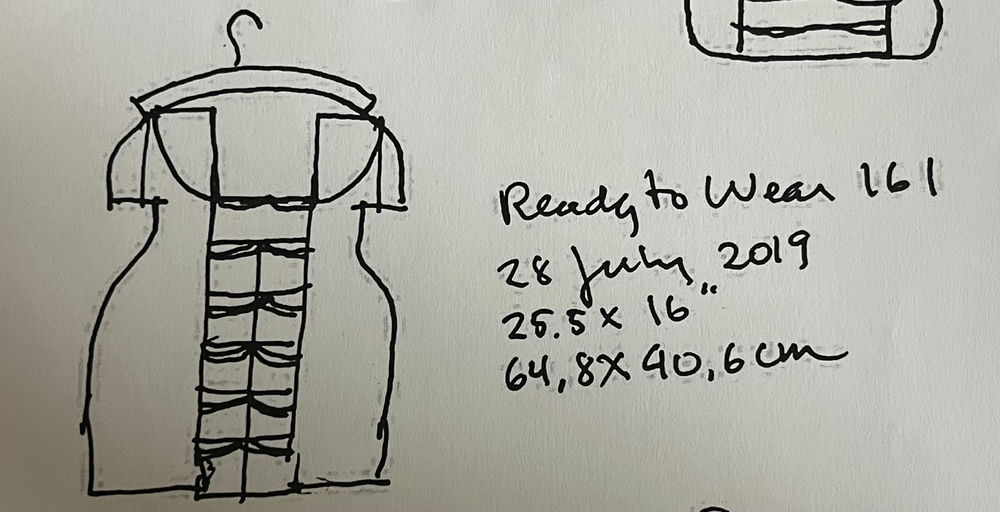 Ready to Wear 161
28 July 2019
25.5 x 16"
64,8 x 40,6 cm